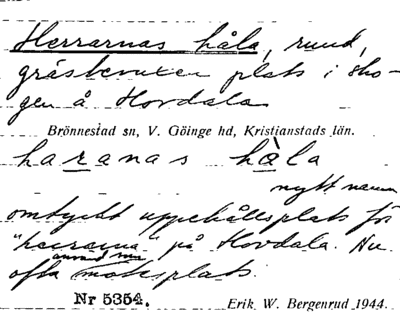 Herrarnas håla, rund,
gräsbevuxen plats i sko-
gen å Hovdala
Brönnestad sn, V. Göinge hd, Kristianstads län.
haranas hàla
nytt namn
omtyckt uppehållsplats för
"herrarna" på Hovdala. Nu
använd som
ofta mötesplats.
Nr 5354.
Erik W. Bergenrud 1944.